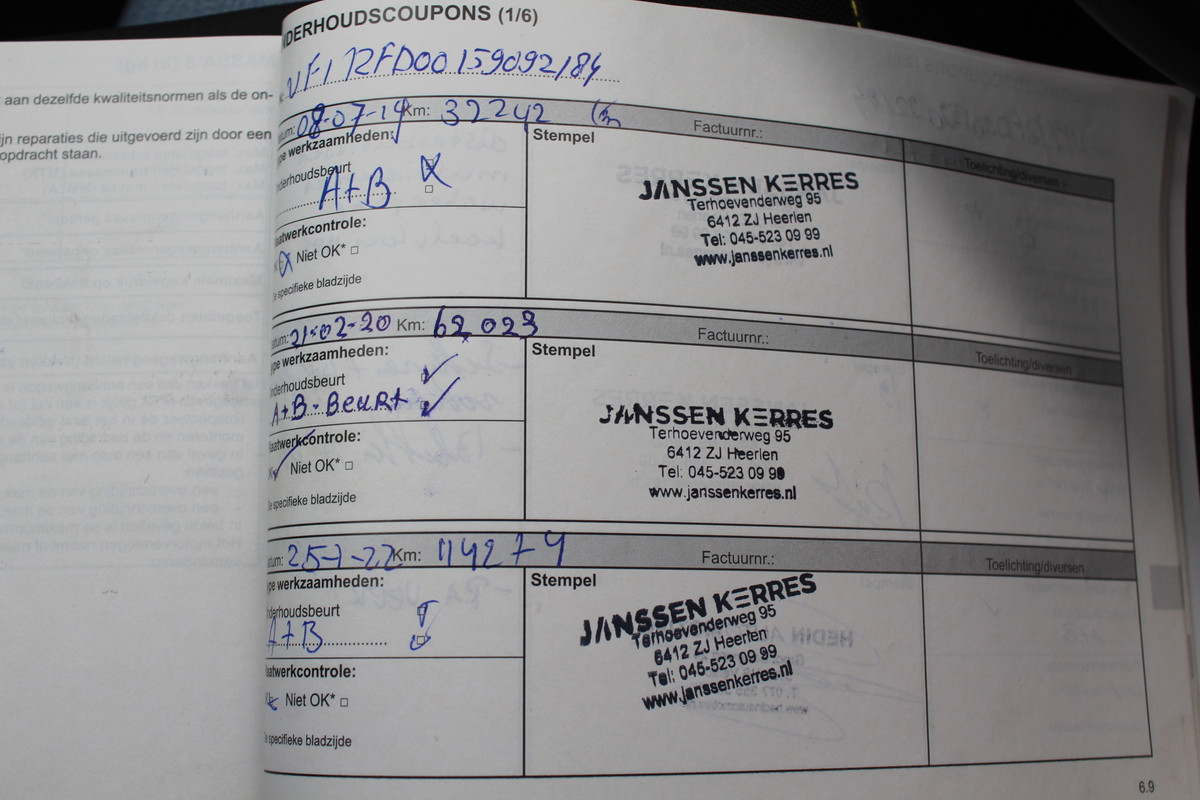 NDERHOUDSCOUPONS (1/6)
aan dezelfde kwaliteitsnormen als de on-
jn reparaties die uitgevoerd zijn door een
opdracht staan.
VF1 RFD00 159092184
atum: 08-07-19 Km: 32242 Factuurnr.:
pe werkzaamheden: Stempel Toelichting/diversen
nderhoudsbeurt
A+B
aatwerkcontrole:
Niet OK* □
e specifieke bladzijde
JANSSEN KERRES
Terhoevenderweg 95
6412 ZJ Heerlen
Tel: 045-523 09 99
www.janssenkerres.nl
atum: 21-02-20 Km: 62 023 Factuurnr.:
pe werkzaamheden: Stempel Toelichting/diversen
nderhoudsbeurt
A+B-Beurt
aatwerkcontrole:
Niet OK* □
e specifieke bladzijde
JANSSEN KERRES
Terhoevenderweg 95
6412 ZJ Heerlen
Tel: 045-523 09 99
www.janssenkerres.nl
atum: 25-1-22 Km: 114274 Factuurnr.:
pe werkzaamheden: Stempel Toelichting/diversen
nderhoudsbeurt
A+B
aatwerkcontrole:
Niet OK* □
e specifieke bladzijde
JANSSEN KERRES
Terhoevenderweg 95
6412 ZJ Heerlen
Tel: 045-523 09 99
www.janssenkerres.nl
6.9